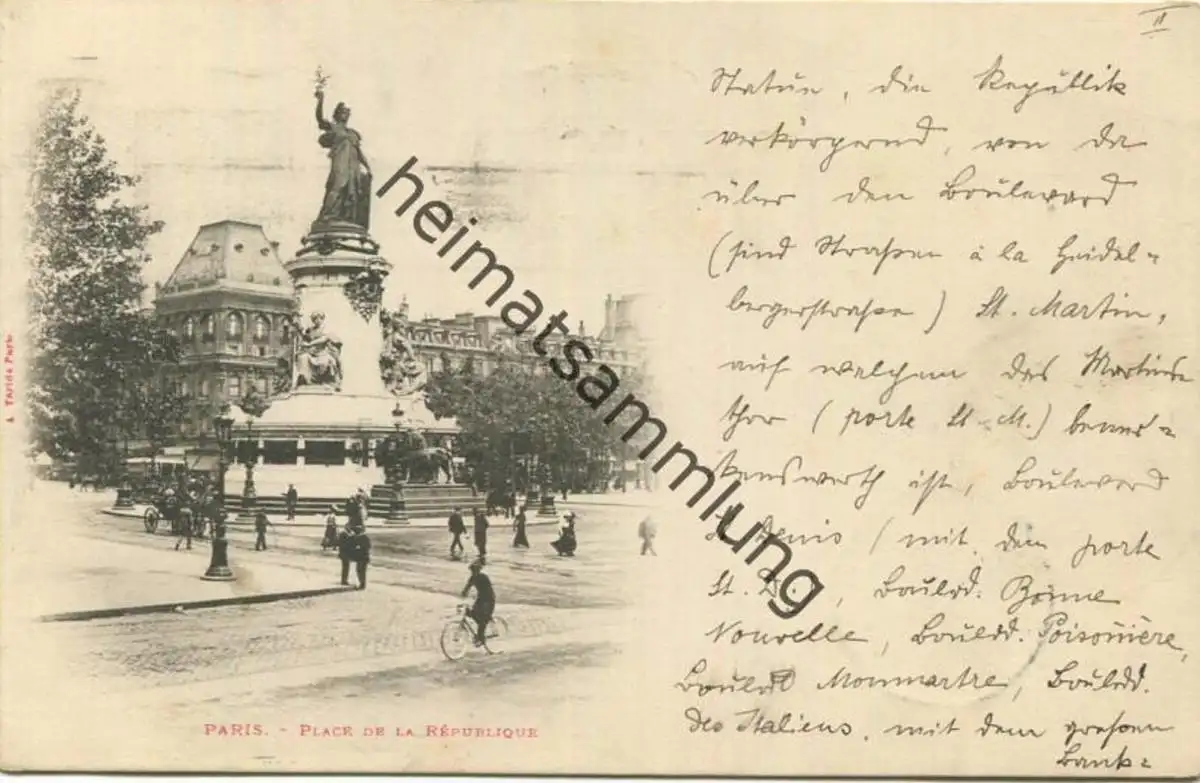 II
Statue, die Republik
verkörpernd, von da
über den Boulevard
(sind Straßen à la Heidel=
bergerstraßen) St. Martin,
auf welchem das Martins
thor (porte St. M.) bemer=
kenswerth ist, Boulevard
St. Denis (mit dem porte
St. D., Boulvd. Bonne
Nouvelle, Bouldd. Poisonière,
Bouldd Monmartre, Bouldd.
des Italiens, mit dem großen
Bank=
PARIS. - PLACE DE LA RÉPUBLIQUE
A. Taride Paris
heimatsammlung.de